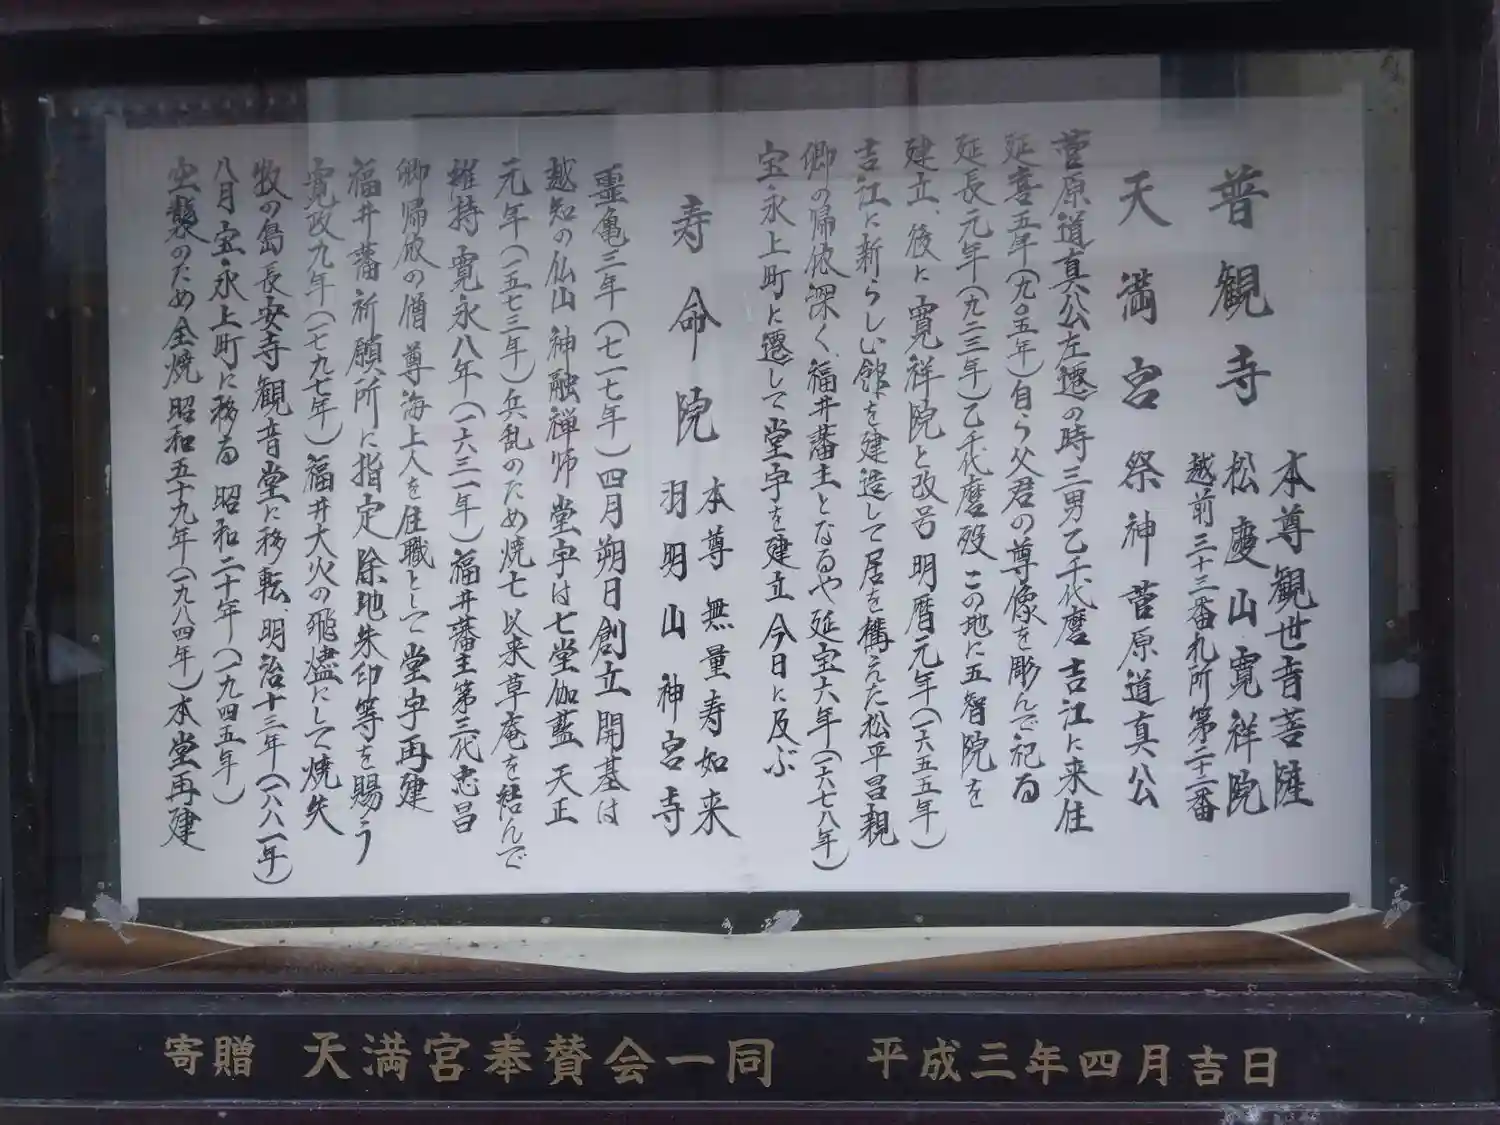 普観寺
本尊観世音菩薩
松慶山寛祥院
越前三十三番札所第二十二番
天満宮 祭神菅原道真公
菅原道真公左遷の時三男乙千代麿吉江に来住
延喜五年(九〇五年)自ら父君の尊像を彫んで祀る
延長元年(九二三年)乙千代麿歿 この地に五智院を
建立、後に寛祥院と改号 明暦元年(一六五五年)
吉江に新らしい館を建造して居を構えた松平昌親
卿の帰依深く、福井藩主となるや延宝六年(一六七八年)
宝永上町に遷して堂宇を建立 今日に及ぶ
寿命院
本尊 無量寿如来
羽明山神宮寺
霊亀三年(七一七年)四月朔日創立 開基は
越知の仏山 神融禅師 堂宇は七堂伽藍 天正
元年(一五七三年)兵乱のため焼亡 以来草庵を結んで
維持 寛永八年(一六三一年)福井藩主第三代忠昌
卿帰依の僧 尊海上人を住職として堂宇再建
福井藩祈願所に指定 除地朱印等を賜う
寛政九年(一七九七年)福井大火の飛燼にして焼失
牧の島長安寺観音堂に移転、明治十三年(一八八一年)
八月宝永上町に移る 昭和二十年(一九四五年)
空襲のため全焼 昭和五十九年(一九八四年)本堂再建
寄贈 天満宮奉賛会一同 平成三年四月吉日